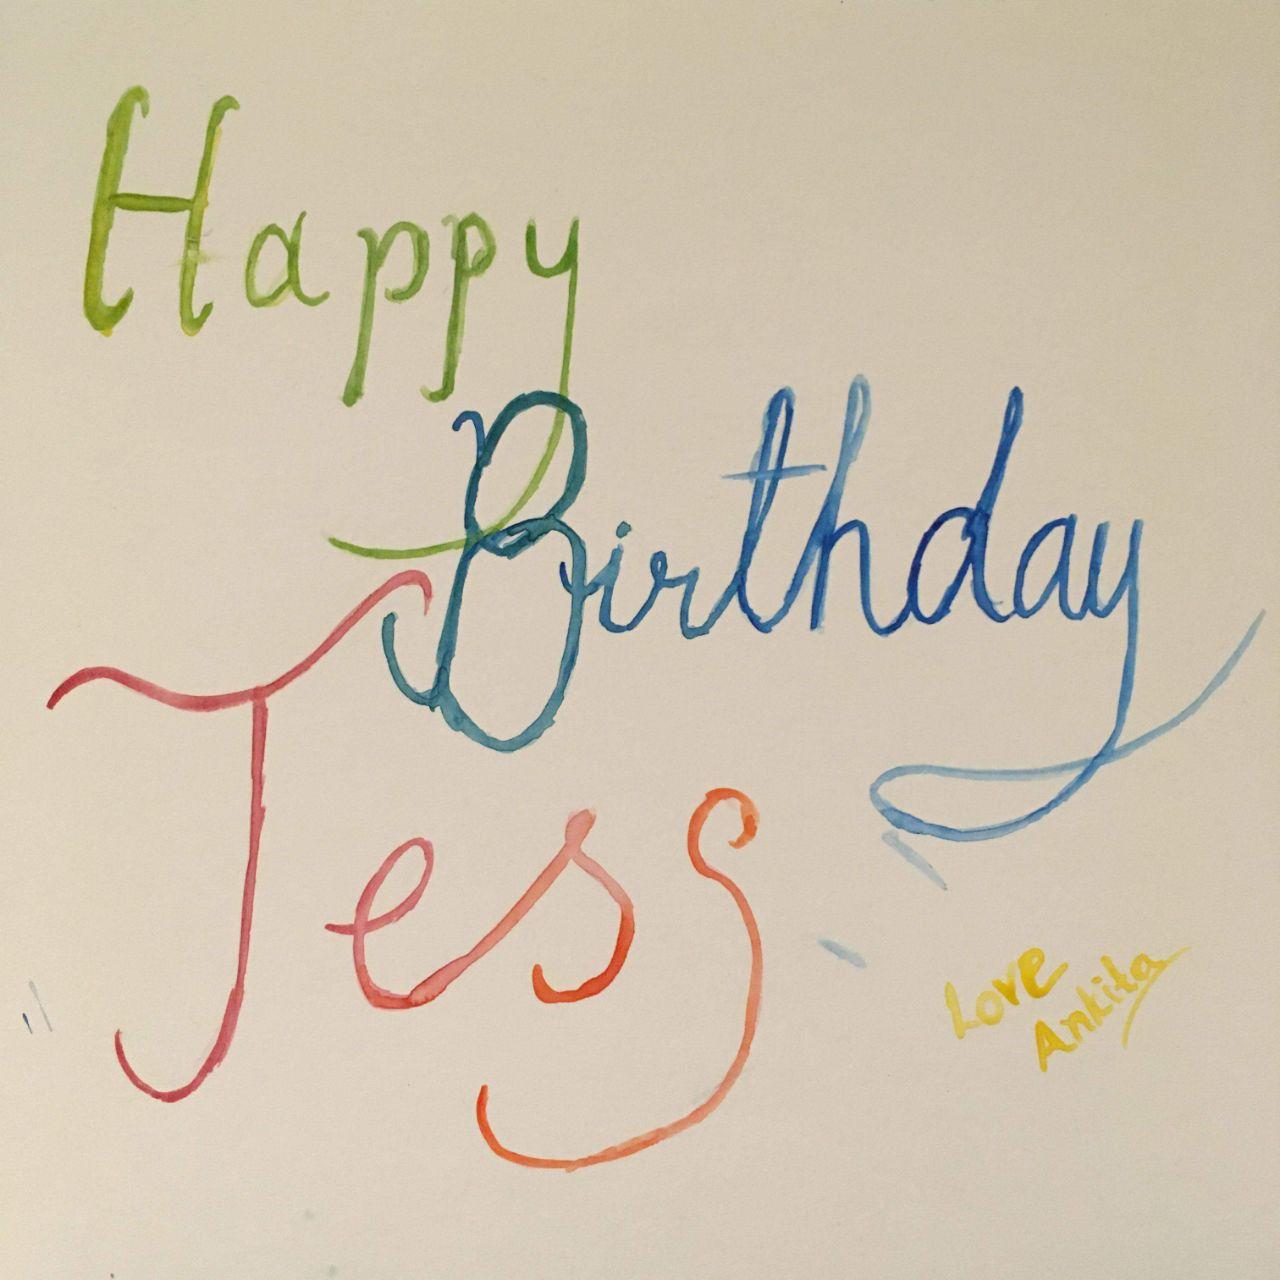 Happy
Birthday
Jess
Love
Ankita